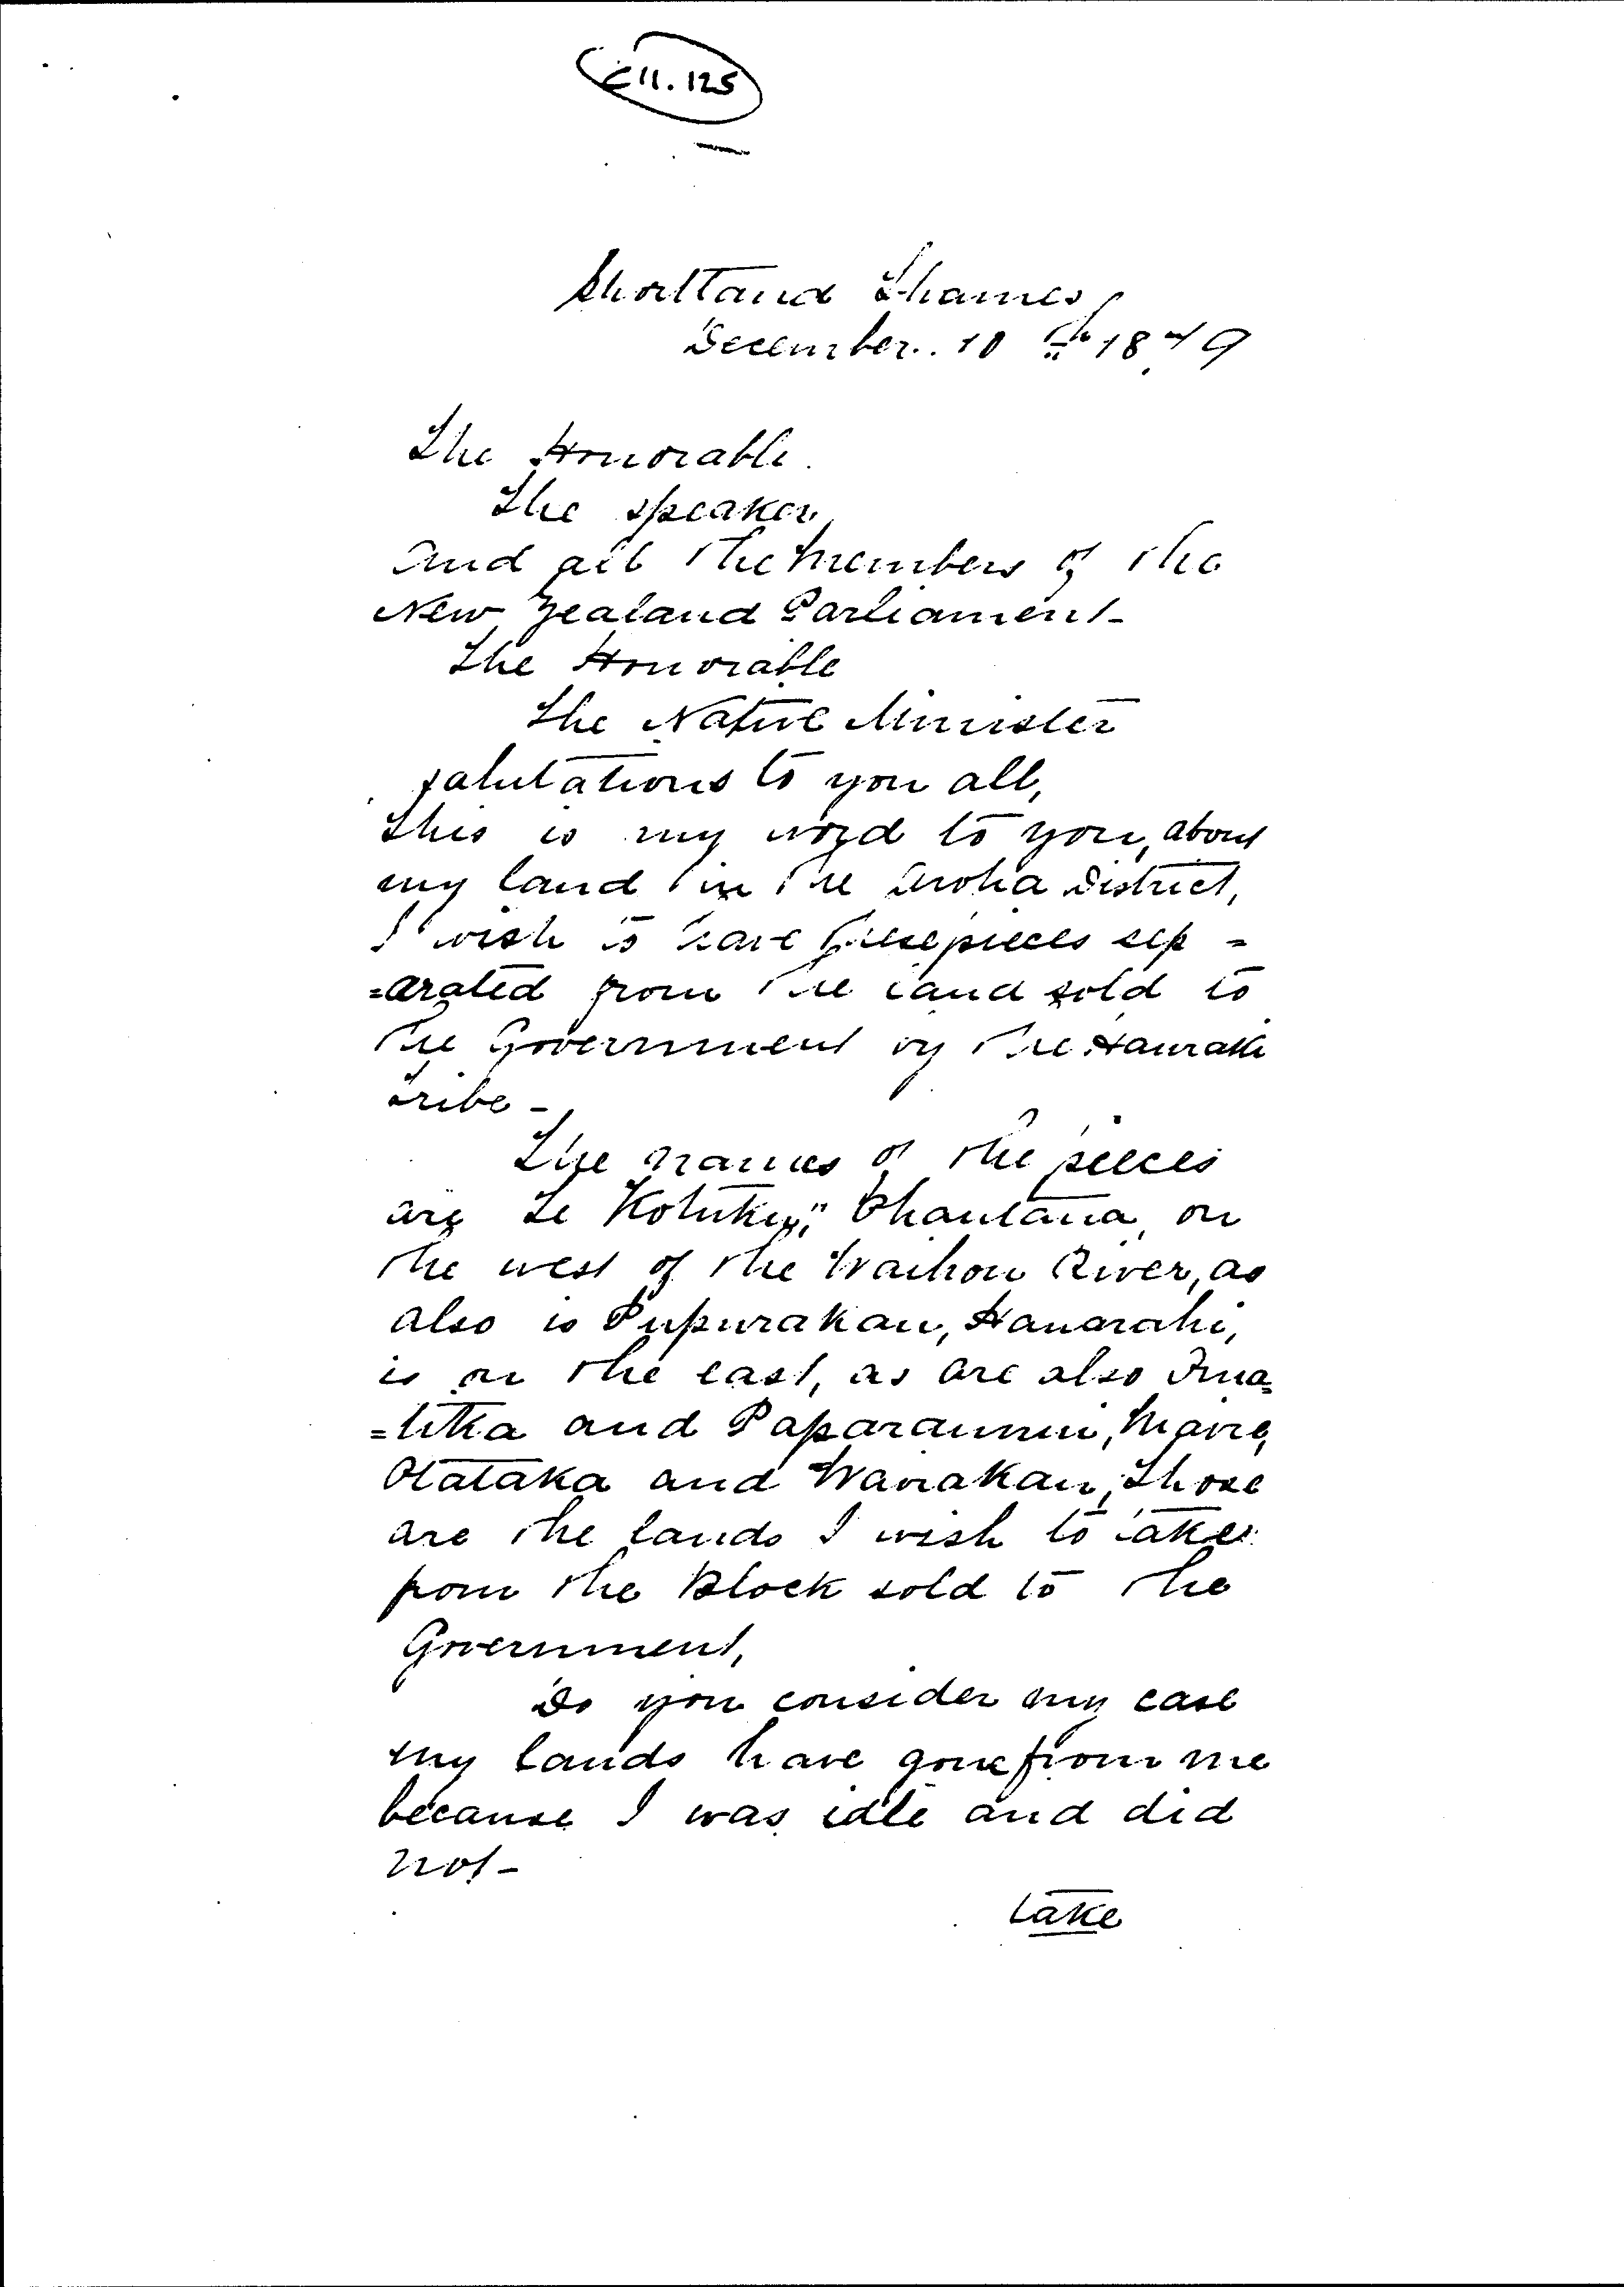 E11.125
Shortland Thames
December.. 10 th 1879
The Honorable.
The speaker
and all the members of the
New Zealand Parliament-
The Honorable
The Native Minister
salutations to you all,
this is my word to you, about
my land in the Aroha District,
I wish to have these pieces sep =
=arated from the land sold to
the Government by the Hauraki
Tribe -
The names of the pieces
are Te Kohukey," on
the west of the Waihou River, as
also is Pupurakau, Hanarahi,
is on the east, as are also
and Mavie,
Otataka and Wairakau, those
are the lands I wish to take
from the Block sold to the
Government,
Do you consider my case
my lands have gone from me
because I was idle and did
not-
take